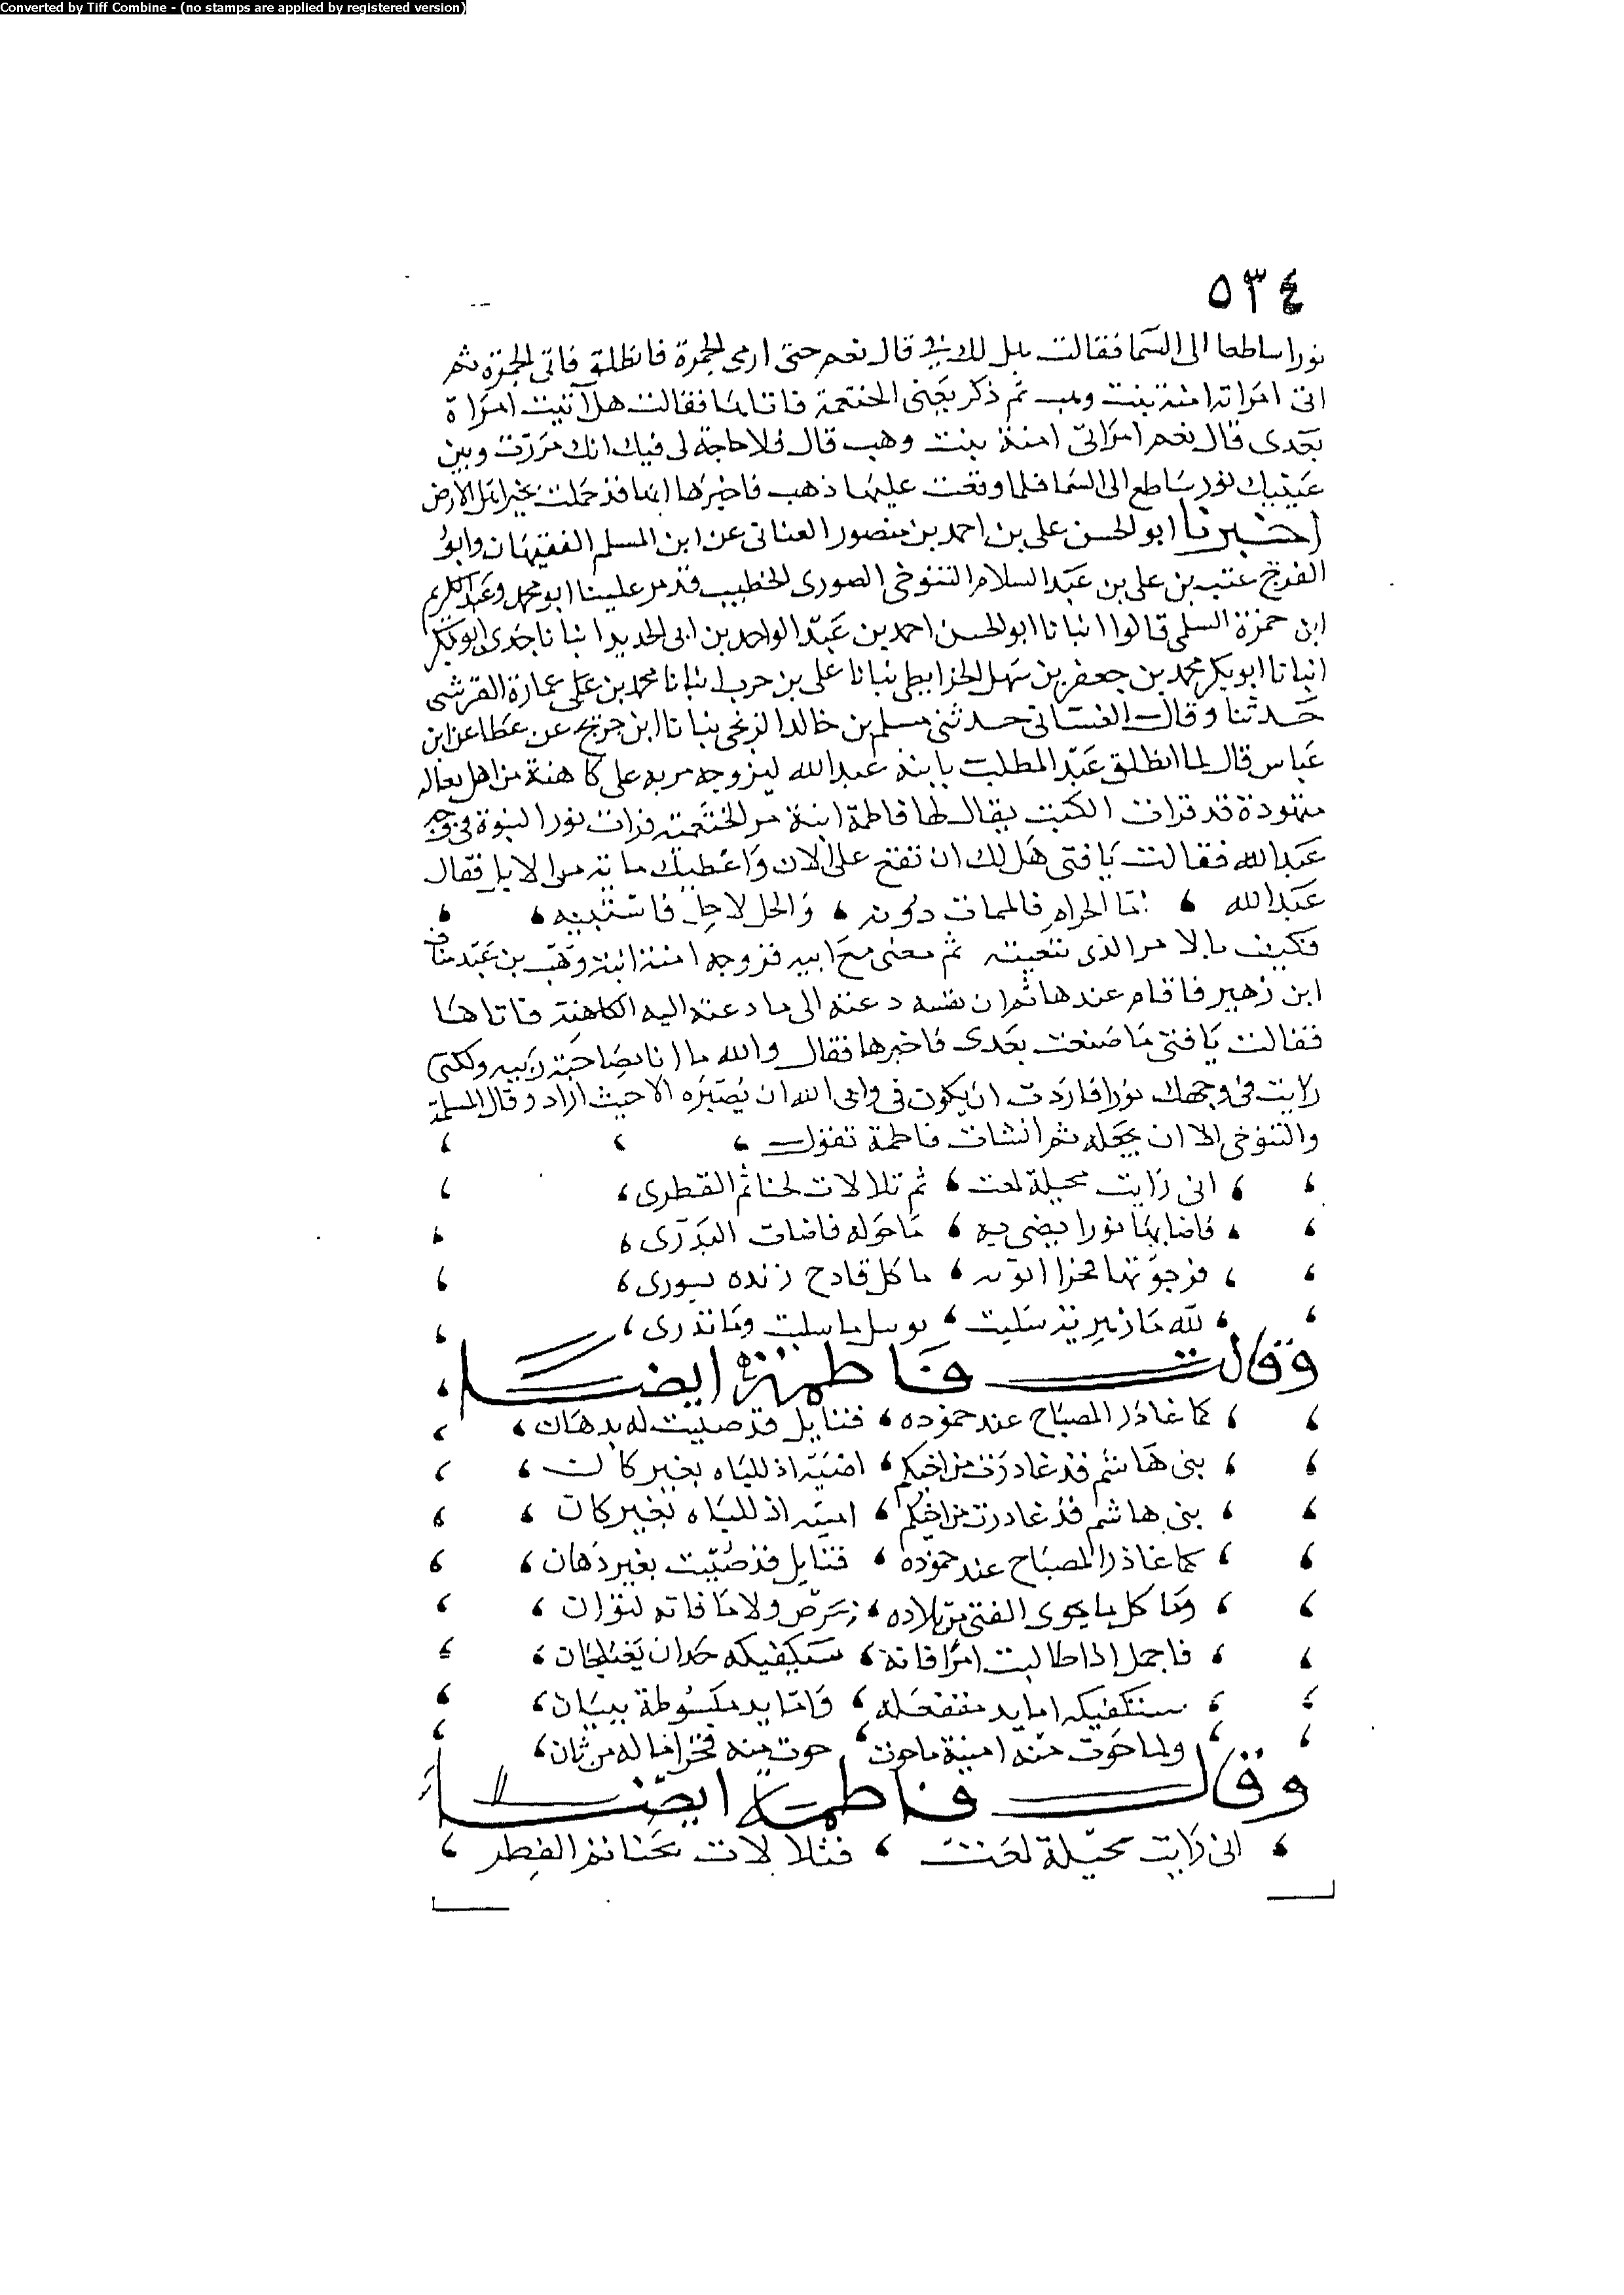 Converted by Tiff Combine - (no stamps are applied by registered version)
٥٣٤
نورا ساطعا الى السما فقالت هل لك فى قال نعم حتى ارمى الجمرة فانطلق فاتى الجمرة ثم
اتى امراته امنة بنت وهب ثم ذكر يعنى الخثعمية فاتاها فقالت هل اتيت امراة
بعدى قال نعم امراتى امنة بنت وهب قال فلا حاجة لى فيك انك مررت وبين
عينيك نور ساطع الى السما فلما وقعت عليها ذهب فاخبرها انها قد حملت بخير اهل الارض
اخبرنا ابو الحسن على بن احمد بن منصور الغسانى عن ابن المسلم الفقيهان وابو
الفرج غيث بن على بن عبد السلام التنوخى الصورى الخطيب قدم علينا ابو محمد وعبد الكريم
ابن حمزة السلمى قالوا انبانا ابو الحسن احمد بن عبد الواحد بن ابى الحديد انبانا جدى ابو بكر
انبانا ابو بكر محمد بن جعفر بن سهل الخرايطى نبانا على بن حرب انبانا محمد بن على عمارة القرشى
حدثنا وقال الغسانى حدثنى مسلم بن خالد الزنجى نبانا ابن جريج عن عطا عن ابن
عباس قال لما انطلق عبد المطلب بابنه عبد الله ليزوجه مر به على كاهنة من اهل تباله
متهودة قد قرات الكتب يقال لها فاطمة ابنة مر الخثعمية فرات نور النبوة فى وجه
عبد الله فقالت يا فتى هل لك ان تقع على الان واعطيك ماية من الابل فقال
عبد الله ، اما الحرام فالممات دونه ، والحل لا حل فاستبينه ،
فكيف بالامر الذى تبغينه ثم مضى مع ابيه فزوجه امنة ابنة وهب بن عبد مناف
ابن زهير فاقام عندها ثم ان نفسه دعته الى ما دعته اليه الكاهنة فاتاها
فقالت يا فتى ما صنعت بعدى فاخبرها فقال والله ما انا بصاحبة ريبه ولكنى
رايت فى وجهك نورا فاردت ان يكون فى وابى الله ان يصيره الا حيث اراد وقال المسلمة
والتنوخى الا ان يجعله ثم انشات فاطمة تقول ،
انى رايت مخيلة لمعت ، ثم تلالات لحناتم القطرى ،
فاضا بها نورا يضى به ، ما حوله فاضات البدرى ،
فرجوتها فخرا ابوء به ، ما كل قادح زنده يورى ،
لله ما زهرية سلبت ، ثوبيك ما سلبت وما تدرى ،
وقالت فاطمة ايضا
كما غادر المصباح عند خموده ، فتايل قد صليت له بدهان ،
بنى هاشم قد غادرت من اخيكم ، امينة اذ للباه بغير كان ،
بنى هاشم قد غادرت من اخيكم ، امينة اذ للباه بغير كان ،
كما غادر المصباح عند خموده ، فتايل قد صليت بغير دهان ،
وما كل ما يحوى الفتى من تلاده ، بحرص ولا ما فاته لتوان ،
فاجمل اذا طالبت امرا فانه ، سيكفيكه جدان يعتلجان ،
ستكفيكه اما يد مقفعله ، واما يد مبسوطة ببنان ،
ولما حوت منه امينة ما حوت ، حوت منه فخرا ما له من ثان ،
وقالت فاطمة ايضا
انى رايت مخيلة لمعت ، فتلالات بحناتم القطر ،